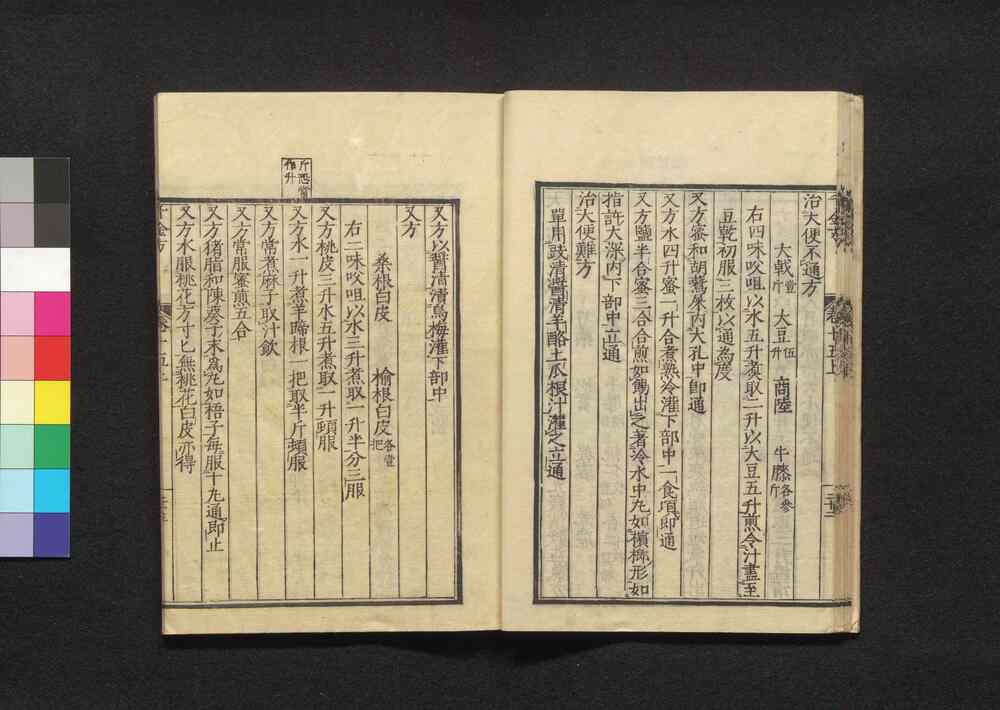 治大便不通方
大戟壹斤 大豆伍升 商陸 牛膝各叁斤
右四味㕮咀以水五升煮取二升以大豆五升煎令汁盡至
豆乾初服三枚以通為度
又方蜜和胡鷰屎內大孔中即通
又方水四升蜜一升合煮熟冷灌下部中一食頃即通
又方鹽半合蜜三合合煎如餳出之著冷水中丸如檳榔形如
指許大深內下部中立通
治大便難方
單用豉清醬清羊酪土瓜根汁灌之立通
又方以醬清漬烏梅灌下部中
又方
桑根白皮 榆根白皮各壹把
右二味㕮咀以水三升煮取一升半分三服
又方桃皮三升水五升煮取一升頓服
又方水一升煮羊蹄根一把取半斤頓服
斤恐當作升
又方常煮麻子取汁飲
又方常服蜜煎五合
又方猪脂和陳葵子末為丸如梧子每服十丸通即止
又方水服桃花方寸匕無桃花白皮亦得